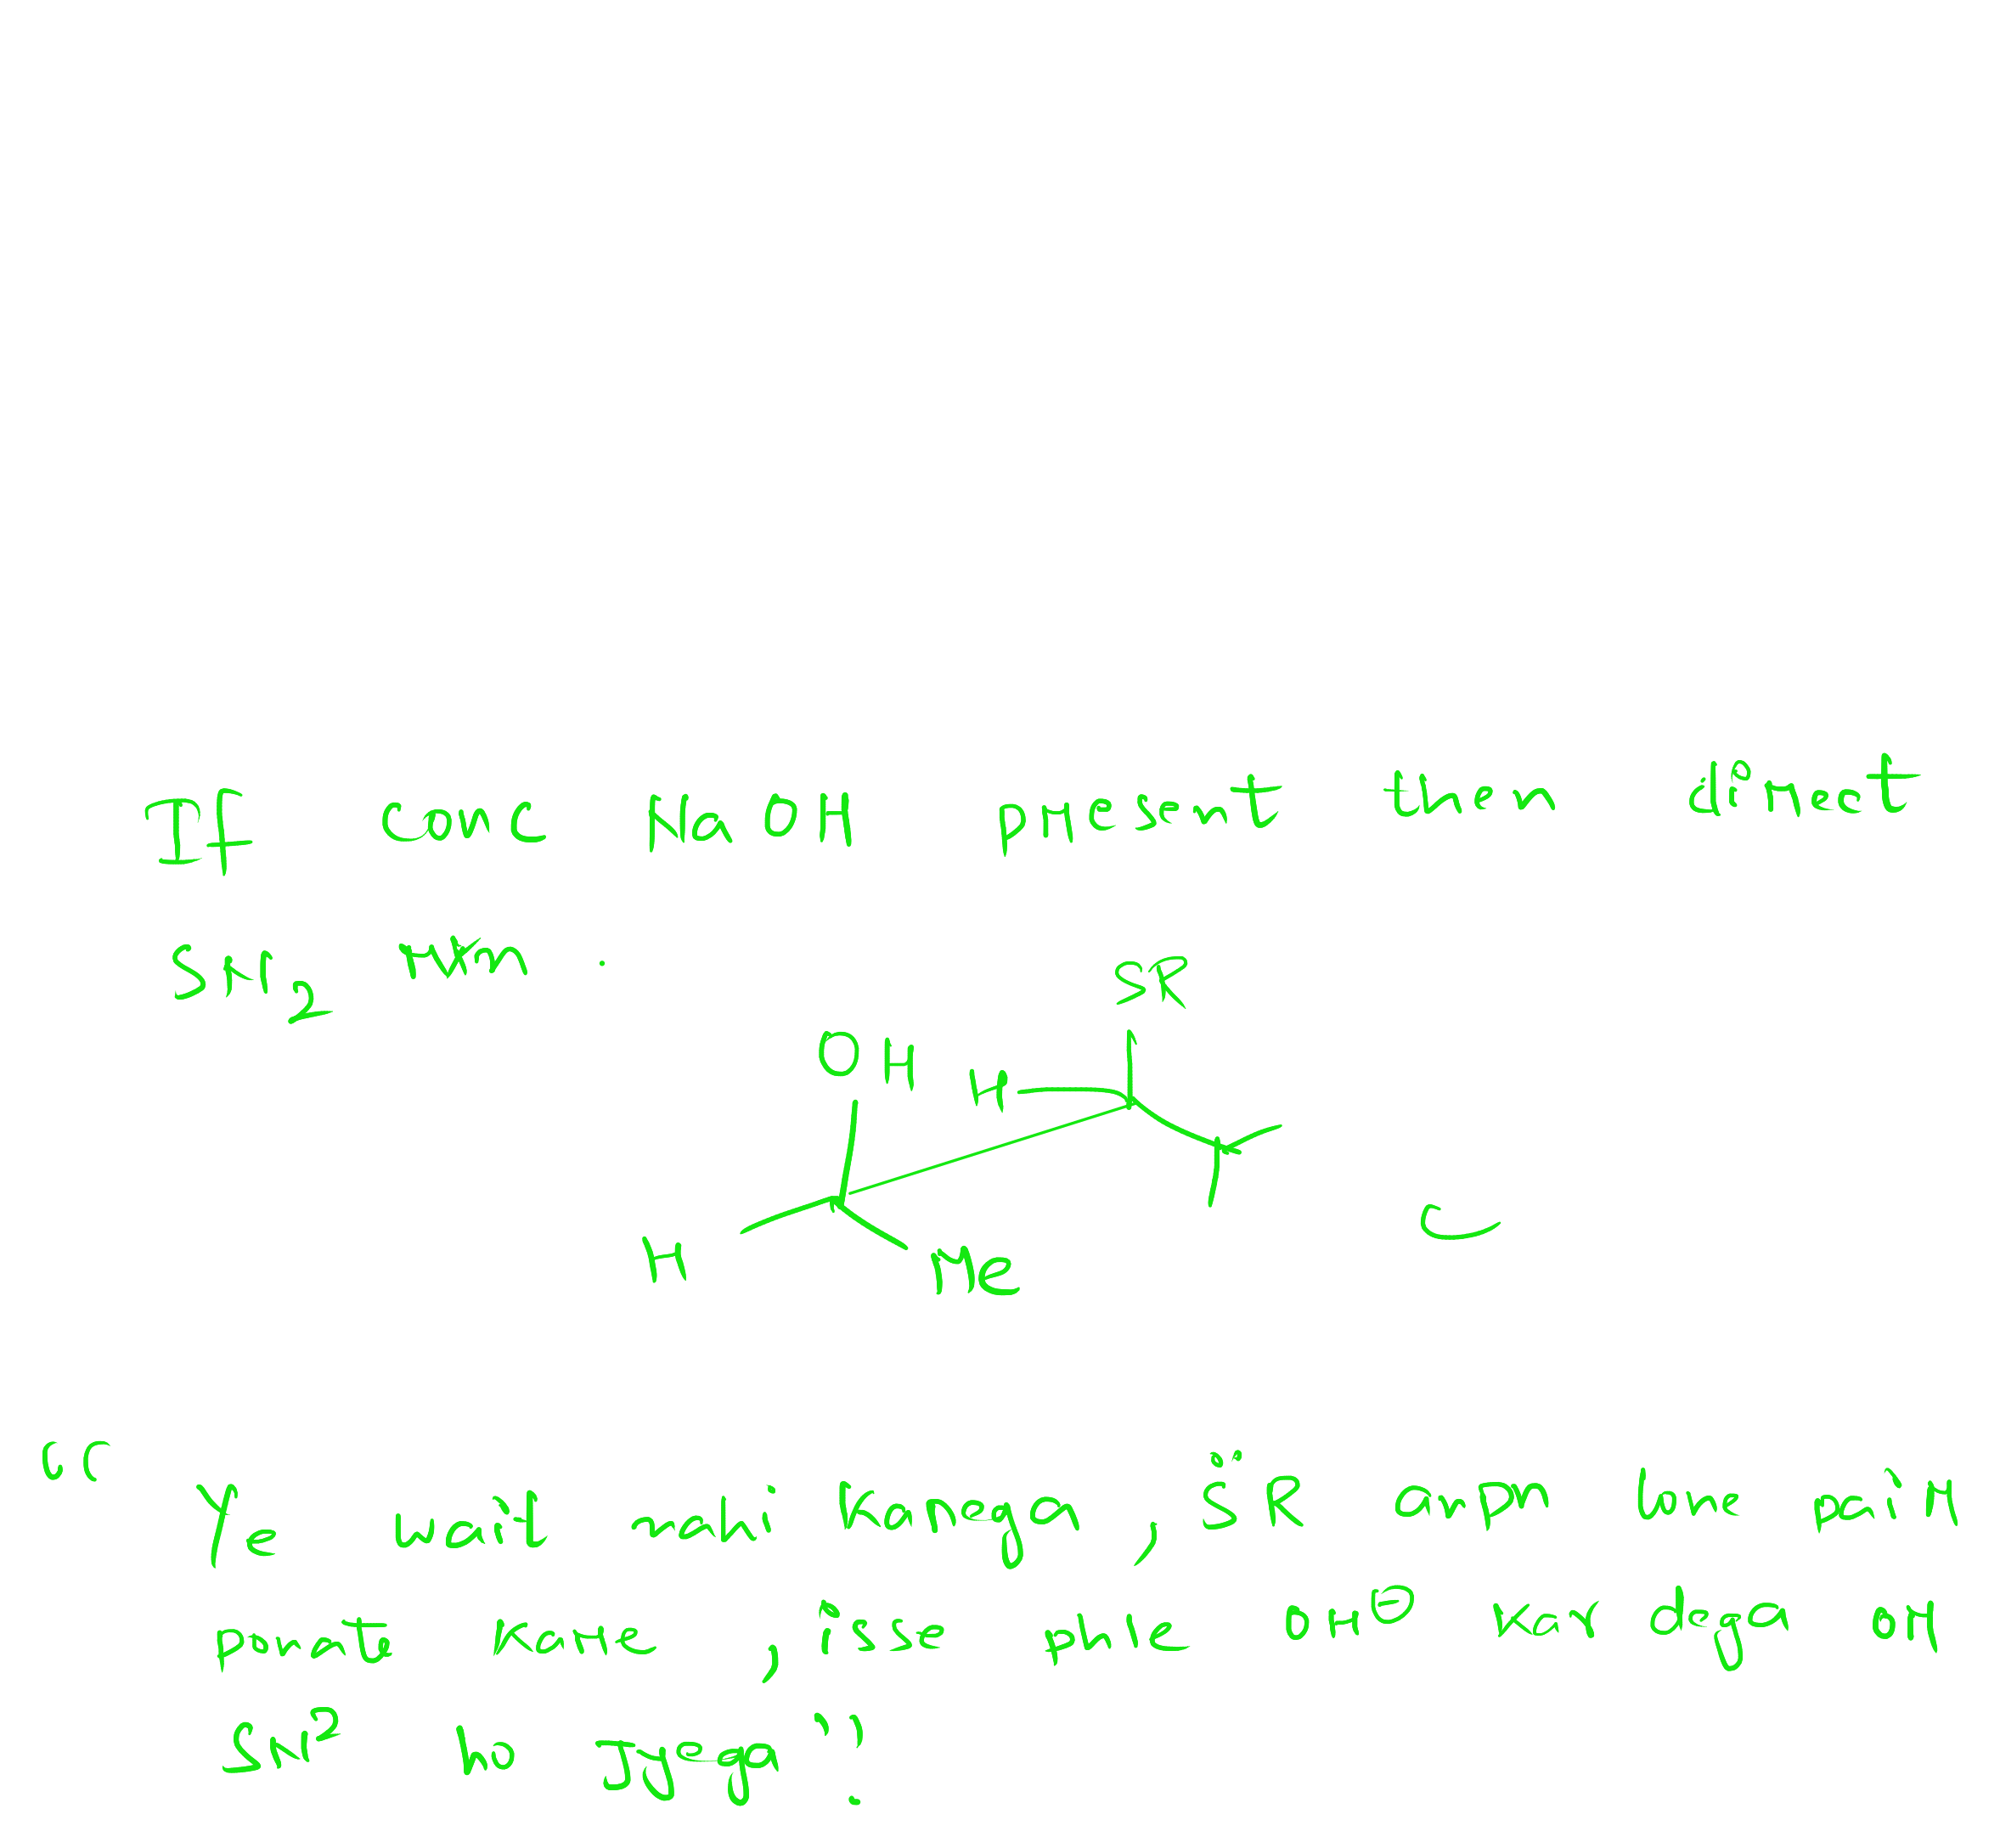 If conc NaOH present then direct
SN2 rxn .
SR
OH H
H Me
C
“ Ye wait nahi Karega , S̈R apna lone pair
donate Karne , isse phle OH⊖ Kar dega or
SN² ho Jyega ”.